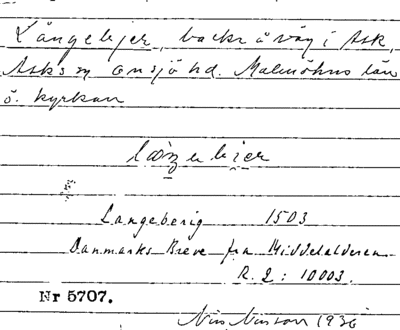 Långebjer, backe å väg i Ask,
Asks sn Onsjö hd. Malmöhus län
ö. kyrkan
Langeberig 1503
Danmarks Breve fra Middelalderen
R. 2 : 10003.
Nr 5707.
Nils Nilsson 1936